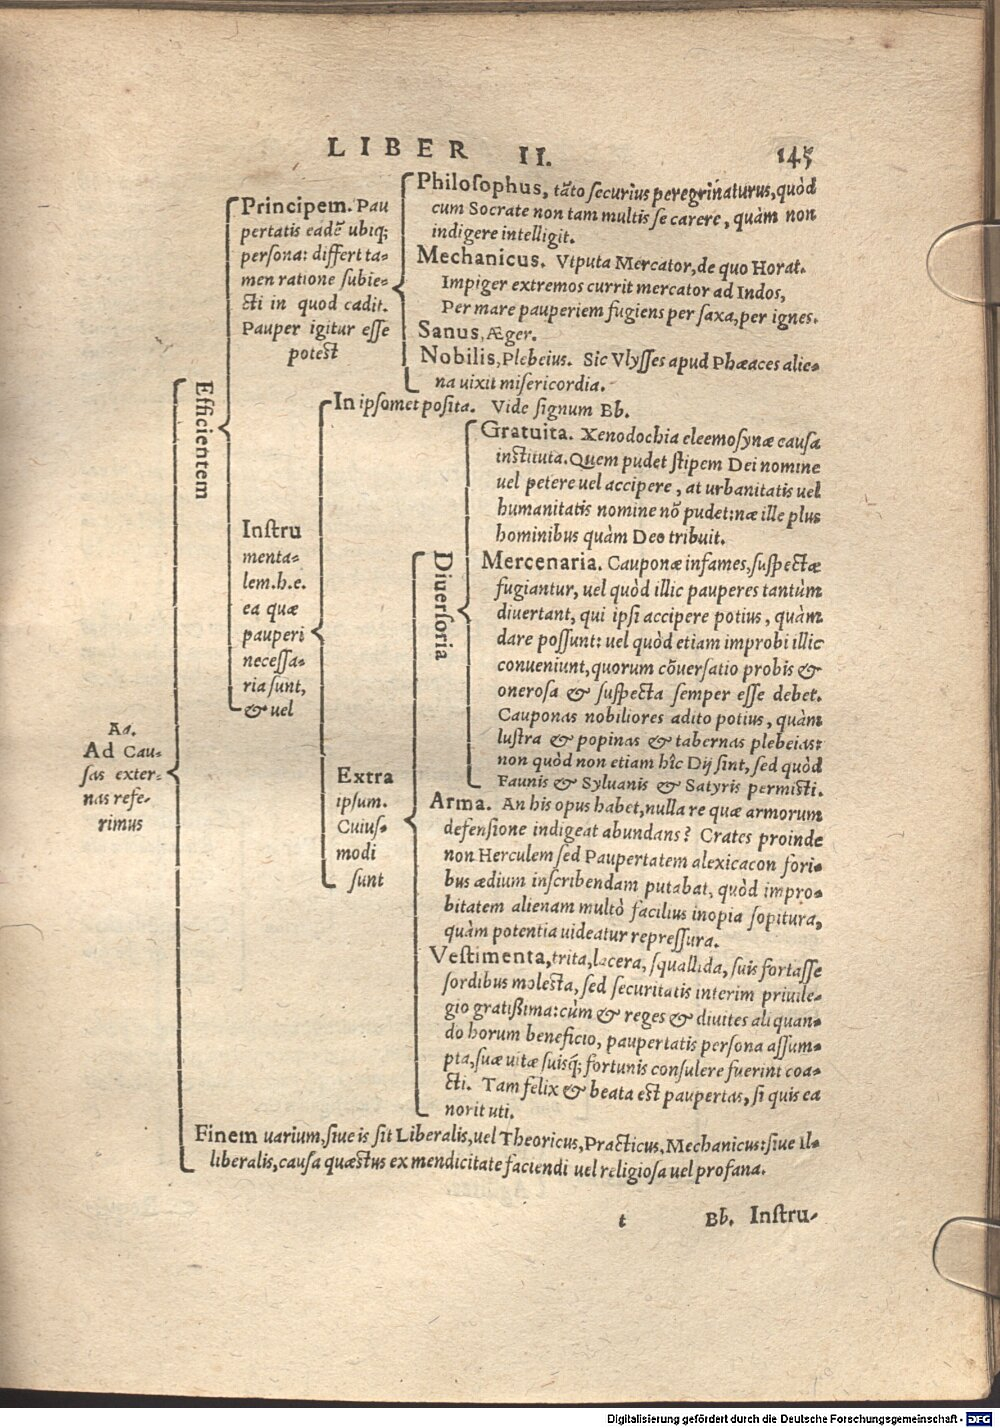 LIBER II. 145
Aa.
Ad Cau-
sas exter-
nas refe-
rimus
Efficientem
Principem. Pau
pertatis eadē ubiq;
persona: differt ta-
men ratione subie-
cti in quod cadit.
Pauper igitur esse
potest
Philosophus, tāto securius peregrinaturus, quòd
cum Socrate non tam multis se carere, quàm non
indigere intelligit.
Mechanicus. Vtputa Mercator, de quo Horat.
Impiger extremos currit mercator ad Indos,
Per mare pauperiem fugiens per saxa, per ignes.
Sanus, Æger.
Nobilis, Plebeius. Sic Vlysses apud Phæaces alie-
na uixit misericordia.
Instru
menta-
lem. h. e.
ea quæ
pauperi
necessa-
ria sunt,
& uel
In ipsomet posita. Vide signum Bb.
Extra
ipsum.
Cuius-
modi
sunt
Diuersoria
Gratuita. Xenodochia eleemosynæ causa
instituta. Quem pudet stipem Dei nomine
uel petere uel accipere, at urbanitatis uel
humanitatis nomine nō pudet: næ ille plus
hominibus quàm Deo tribuit.
Mercenaria. Cauponæ infames, suspectæ
fugiantur, uel quòd illic pauperes tantùm
diuertant, qui ipsi accipere potius, quàm
dare possunt: uel quòd etiam improbi illic
conueniunt, quorum cōuersatio probis &
onerosa & suspecta semper esse debet.
Cauponas nobiliores adito potius, quàm
lustra & popinas & tabernas plebeias:
non quòd non etiam hîc Dij sint, sed quòd
Faunis & Syluanis & Satyris permisti.
Arma. An his opus habet, nulla re quæ armorum
defensione indigeat abundans? Crates proinde
non Herculem sed Paupertatem alexicacon fori-
bus ædium inscribendam putabat, quòd impro-
bitatem alienam multò facilius inopia sopitura,
quàm potentia uideatur repressura.
Vestimenta, trita, lacera, squallida, suis fortasse
sordibus molesta, sed securitatis interim priuile-
gio gratißima: cùm & reges & diuites aliquan-
do horum beneficio, paupertatis persona assum-
pta, suæ uitæ suisq́; fortunis consulere fuerint coa-
cti. Tam felix & beata est paupertas, si quis ea
norit uti.
Finem uarium, siue is sit Liberalis, uel Theoricus, Practicus, Mechanicus: siue Il-
liberalis, causa quæstus ex mendicitate faciendi uel religiosa uel profana.
t Bb. Instru-
Digitalisierung gefördert durch die Deutsche Forschungsgemeinschaft - DFG